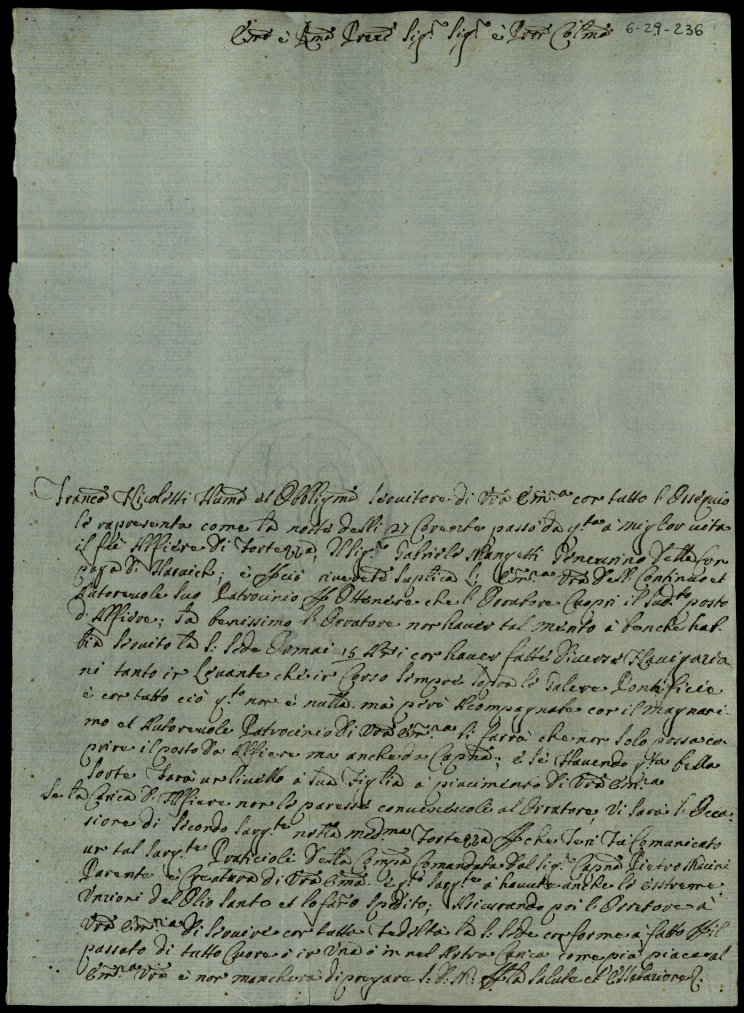 Em̃o è Rm̃o Prẽ Sig.r Sig.r è Prõn Col̃mo 6-29-236
Franco Nicoletti Humo et Obbligmo Seruitore di Vrã Em.za con tutto l'Ossequio
le rapresenta come la notte delli 27 Corente passò da q.ta à miglior uita
il fù Alfiere di Fortezza, Ill Sig.r Gabriele della Com
paga di è però riuerente suplica l' Em.za Vrã dell Continuo et
Autoreuole suo Patrocinio p Ottenere che l' Orratore Cuopri il sud.to posto
d'Alfiere; sà benissimo l' Orratore non hauer tal merito à benche hab
bia seruito la S. Sede Ormai 15 Anni con hauer fatte diuerse Nauigazio
ni tanto in Leuante che in Corso sempre sopra le Galere Pontificie
è con tutto ciò q.to non è nulla, mà però Acompagnato con il magnani
mo et Autoreuole Patrocinio di Vrã Em.za si farrà che non solo possa co
prire il posto da Alfiere ma anche da Capno; è se Hauendo q.ta bella
sorte farà un liuello à sua figlia à piacimento di Vrã Em.za
Se la Carica d'Alfiere non le paresse conueneuole al Orratore, Vi sarà l' Occa
sione di Secondo Sarg.te nella medma Fortezza p che Ieri fù Comunicato
un tal Sarg.te Praticioli della Compa Comandata dal Sig.r Capno Pietro
Parente è Creatura di Vrã Em̃a è q.to Sarg.te à hauute anche le estreme
Unzioni del Olio Santo et lo fanno spedito; Asicurando poi l' Orratore à
Vrã Em.za di seruire con tutta fedeltà la S. Sede conforme à fatto p il
passato di tutto Cuore ò in Una ò in nel Altra Carica come più piace al
Em.za Vrã è non mancherà di pregare S. D. M. p la Salute et Essaltazione